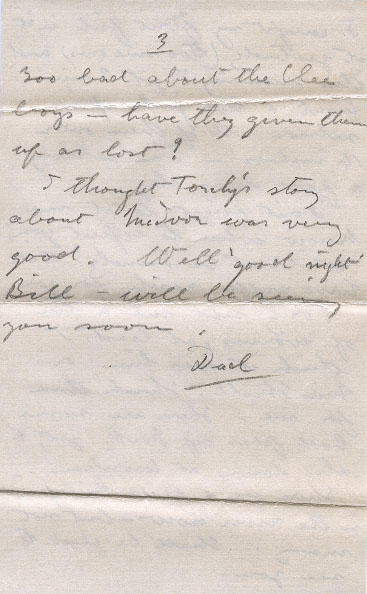 3
Too bad about the Clee
boys — have they given them
up as lost?
I thought Torchy's story
about was very
good. Well "good night"
Bill — will be seeing
you soon.
Dad